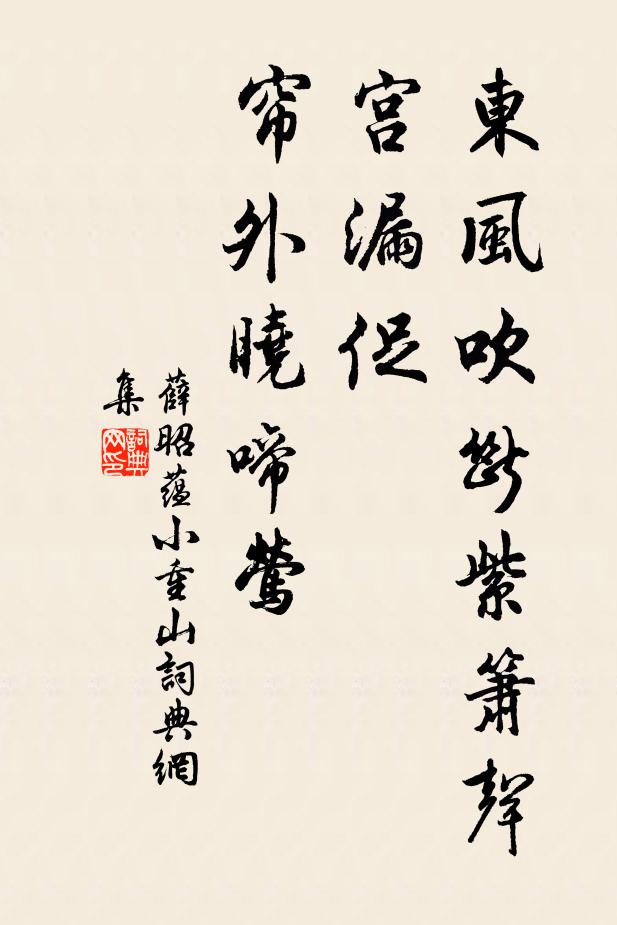 東風吹斷紫簫聲
宮漏促
帘外曉啼鶯
薛昭蘊小重山詞典網
集
詞典
网印